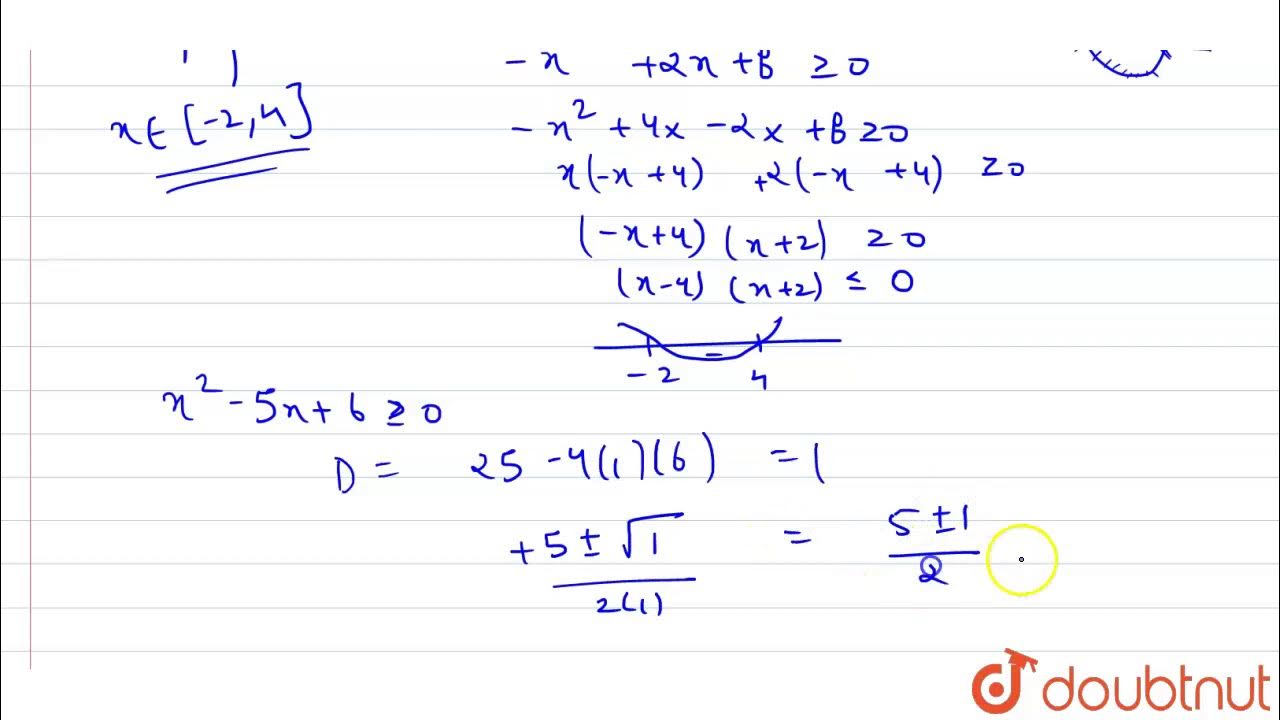 -x +2x+8 ≥0
x∈[-2,4]
-x²+4x-2x+8≥0
x(-x+4) +2(-x+4) ≥0
(-x+4)(x+2) ≥0
(x-4)(x+2) ≤ 0
-2 4
x²-5x+6≥0
D = 25-4(1)(6) =1
+5±√1 = 5±1
2(1) 2
doubtnut